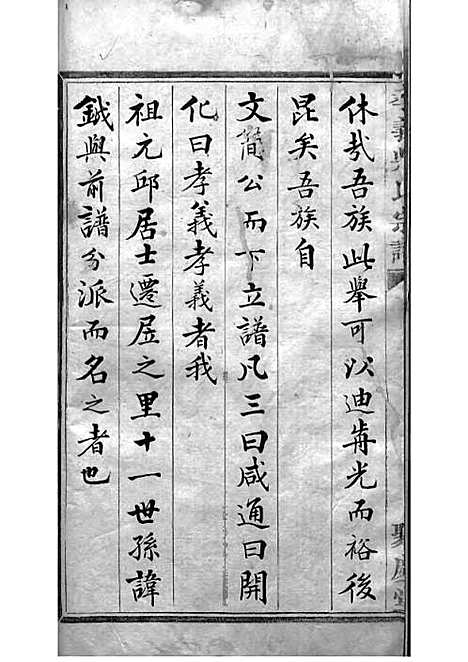 休哉吾族此舉可以迪前光而裕後
昆矣吾族自
文簡公而下立譜凡三曰咸通曰開
化曰孝義孝義者我
祖元邱居士遷居之里十一世孫諱
鉞與前譜分派而名之者也